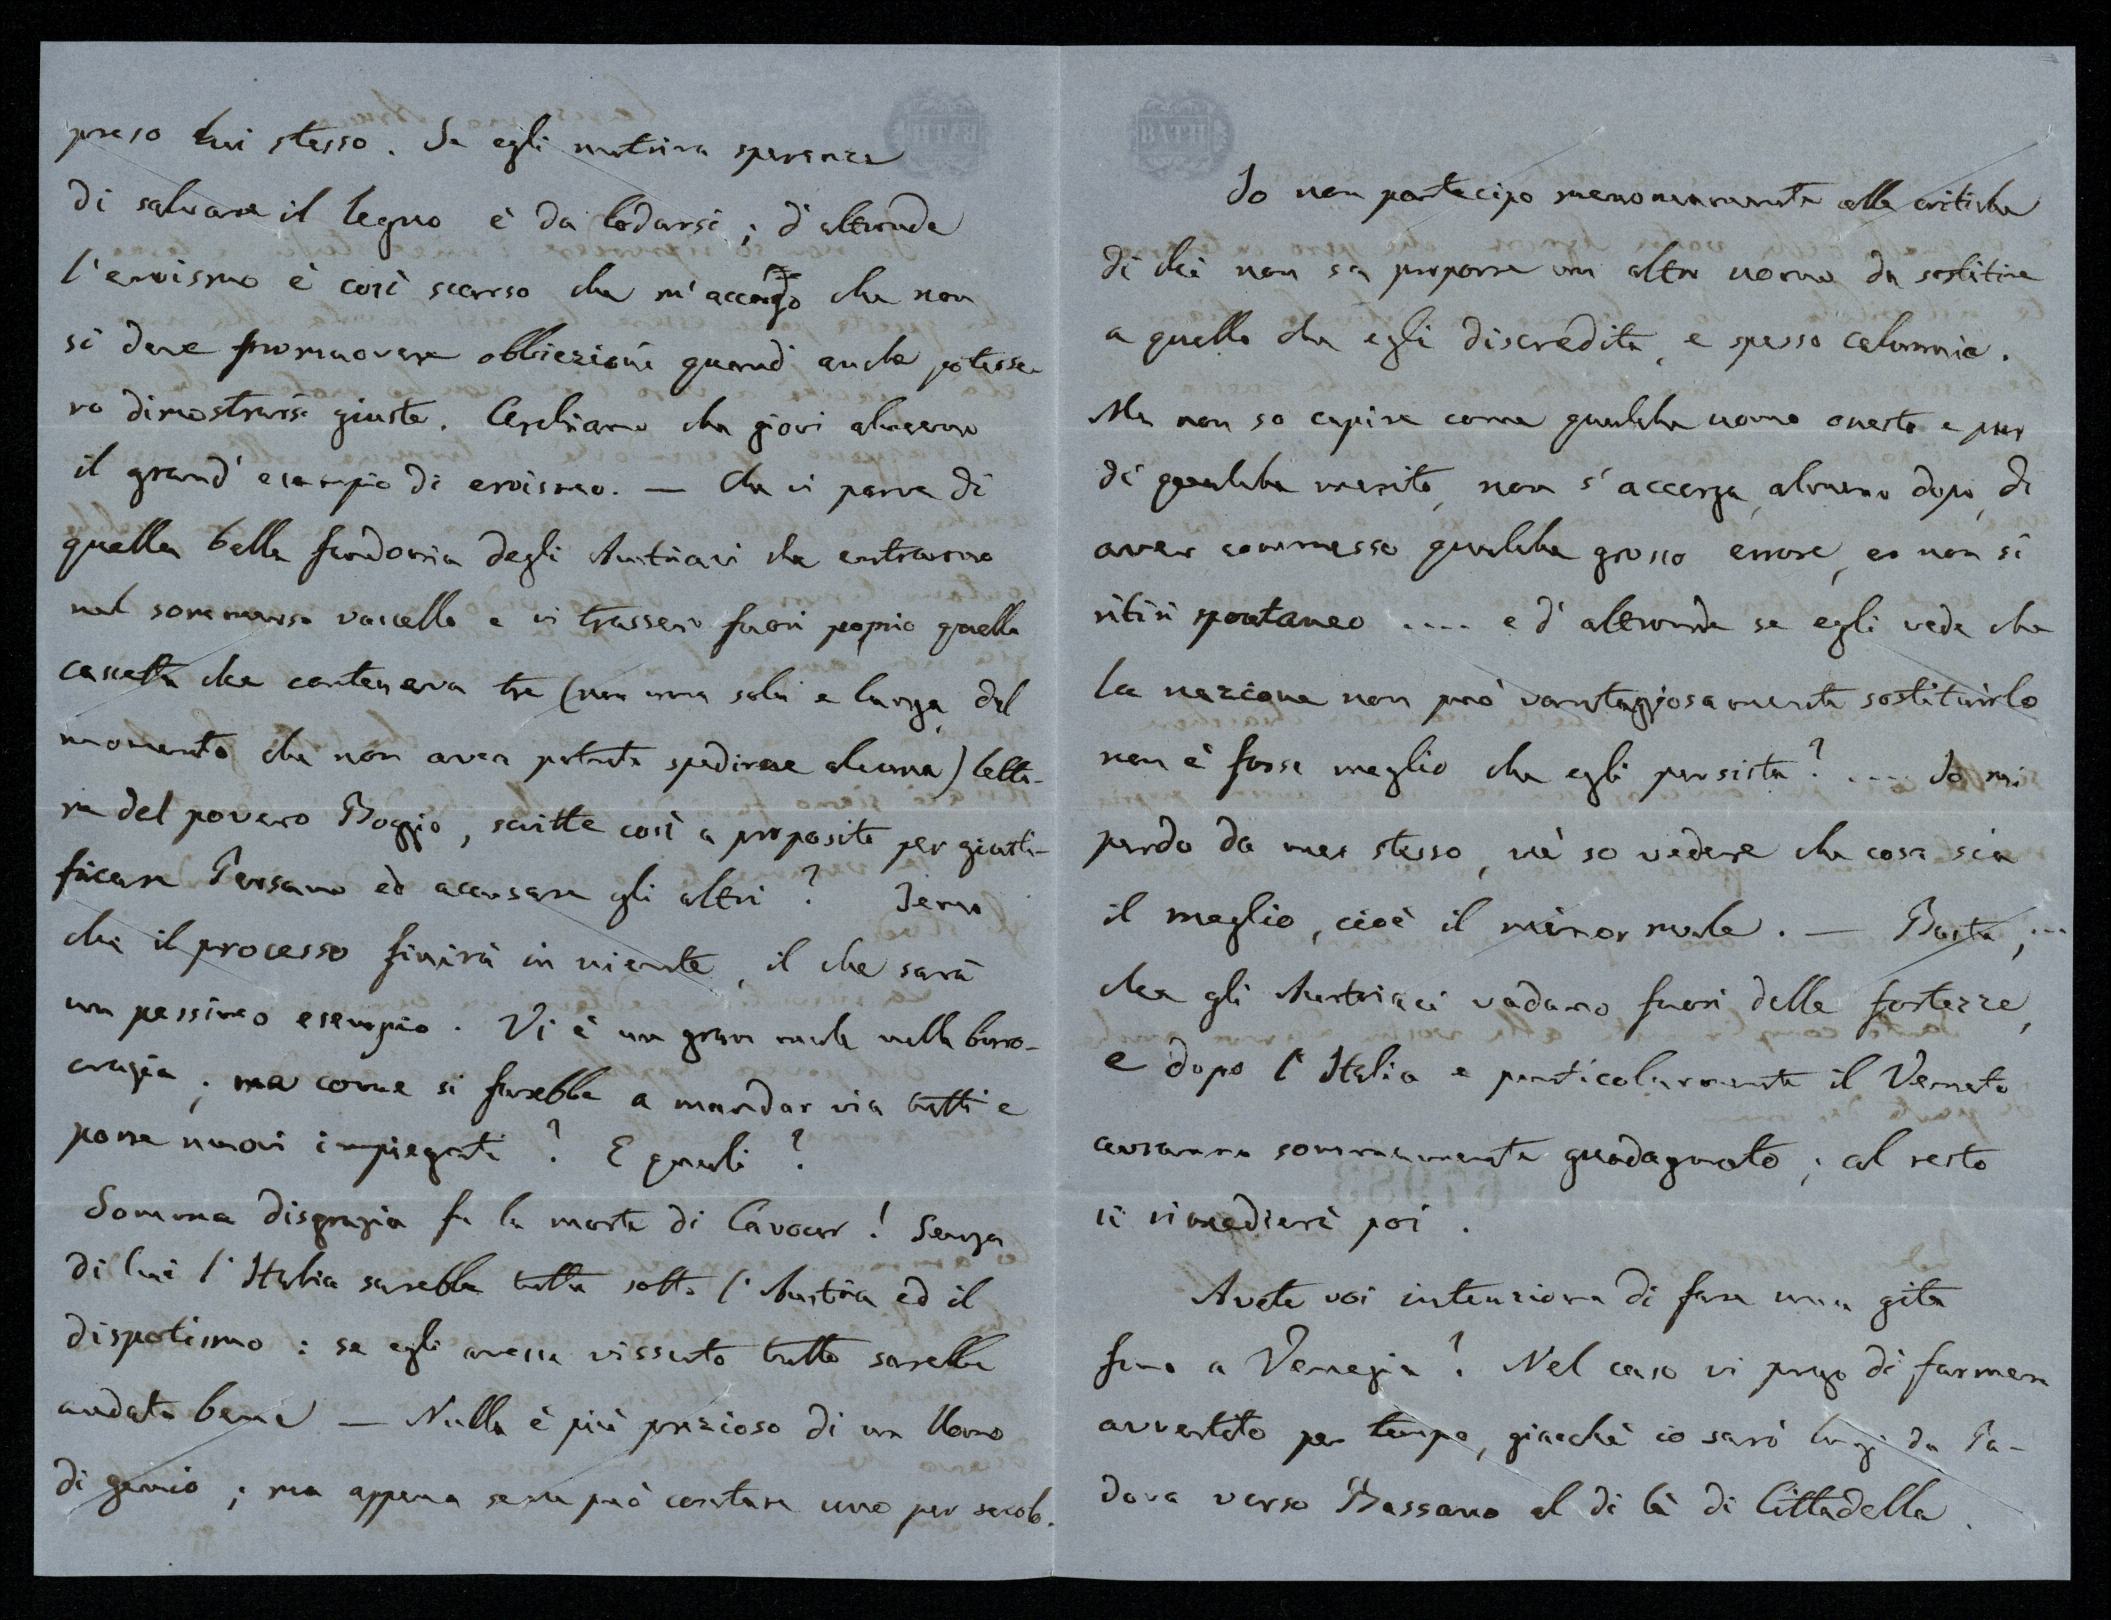 preso lui stesso. Se egli nutriva speranza
di salvare il legno è da lodarsi; d'altronde
l'eroismo è così scarso che m'accorgo che non
si deve promuovere obbiezioni quand'anche potesse-
ro dimostrarsi giuste. Cerchiamo che giovi almeno
il grand'esempio di eroismo. — Che vi parve di
quella bella fandonia degli Austriaci che entrarono
nel sommerso vascello e vi trassero fuori proprio quella
cassetta che conteneva tre (non una sola e lunga, dal
momento che non avea potuto spedirne alcuna) lette-
re del povero Boggio, scritte così a proposito per giusti-
ficare Persano ed accusare gli altri? Temo
che il processo finirà in niente, il che sarà
un pessimo esempio. Vi è un gran male nella buro-
crazia; ma come si farebbe a mandar via tutti e
porre nuovi impiegati? E quali?
Somma disgrazia fu la morte di Cavour! Senza
di lui l'Italia sarebbe tutta sotto l'Austria ed il
dispotismo: se egli avesse vissuto tutto sarebbe
andato bene — Nulla è più prezioso di un Uomo
di genio; ma appena se ne può contare uno per secolo.
Io non partecipo menomamente alle critiche
di chi non sa proporre un altro uomo da sostituire
a quello che egli discredita, e spesso calunnia.
Ma non so capire come qualche uomo onesto e pur
di qualche merito, non s'accorga, almeno dopo, di
aver commesso qualche grosso errore, e non si
ritiri spontaneo .... e d'altronde se egli vede che
la nazione non può vantaggiosamente sostituirlo
non è forse meglio che egli persista? .... Io mi
perdo da me stesso, nè so vedere che cosa sia
il meglio, cioè il minor male. — Basta, ...
che gli Austriaci vadano fuori delle fortezze,
e dopo l'Italia e particolarmente il Veneto
avranno sommamente guadagnato; al resto
si rimedierà poi.
Avete voi intenzione di fare una gita
fino a Venezia? Nel caso vi prego di farmene
avvertito per tempo, giacchè io sarò lungi da Pa-
dova verso Bassano al di là di Cittadella.